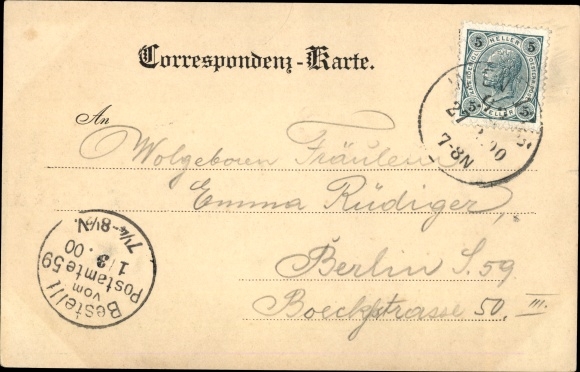 Correspondenz-Karte.
An
Wolgeboren Fräulein
Emma Rüdiger,
Berlin S. 59.
Boeckhstrasse 50. III.
5 HELLER 5
5 HELLER 5
WIEN
27
00
7-8N
Bestellt
vom
Postamte 59
1/3.00
7¼-8½N.